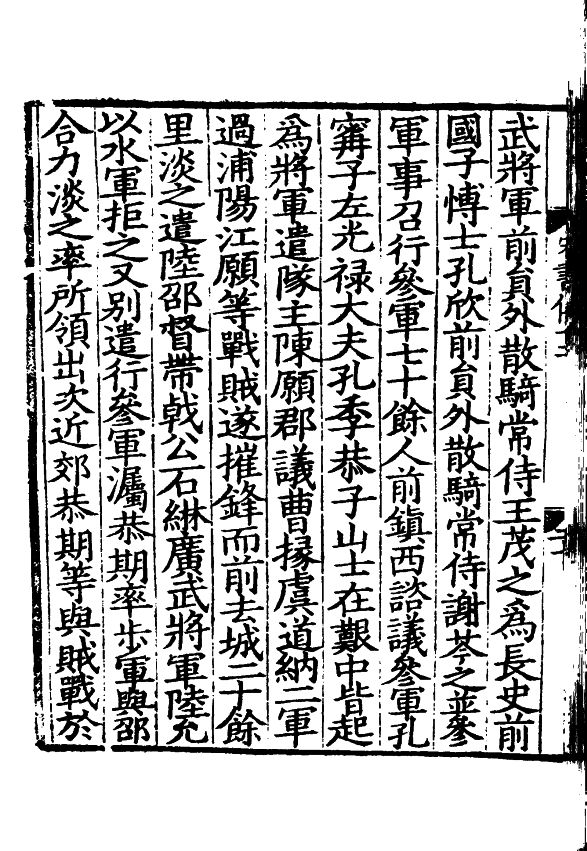 武將軍前員外散騎常侍王茂之爲長史前
國子博士孔欣前員外散騎常侍謝芩之並參
軍事召行參軍七十餘人前鎮西諮議參軍孔
甯子左光禄大夫孔季恭子山士在艱中皆起
爲將軍遣隊主陳願郡議曹掾虞道納二軍
過浦陽江願等戰賊遂摧鋒而前去城二十餘
里淡之遣陸邵督帶戟公石綝廣武將軍陸允
以水軍拒之又别遣行參軍漏恭期率步軍與邵
合力淡之率所領出次近郊恭期等與賊戰於